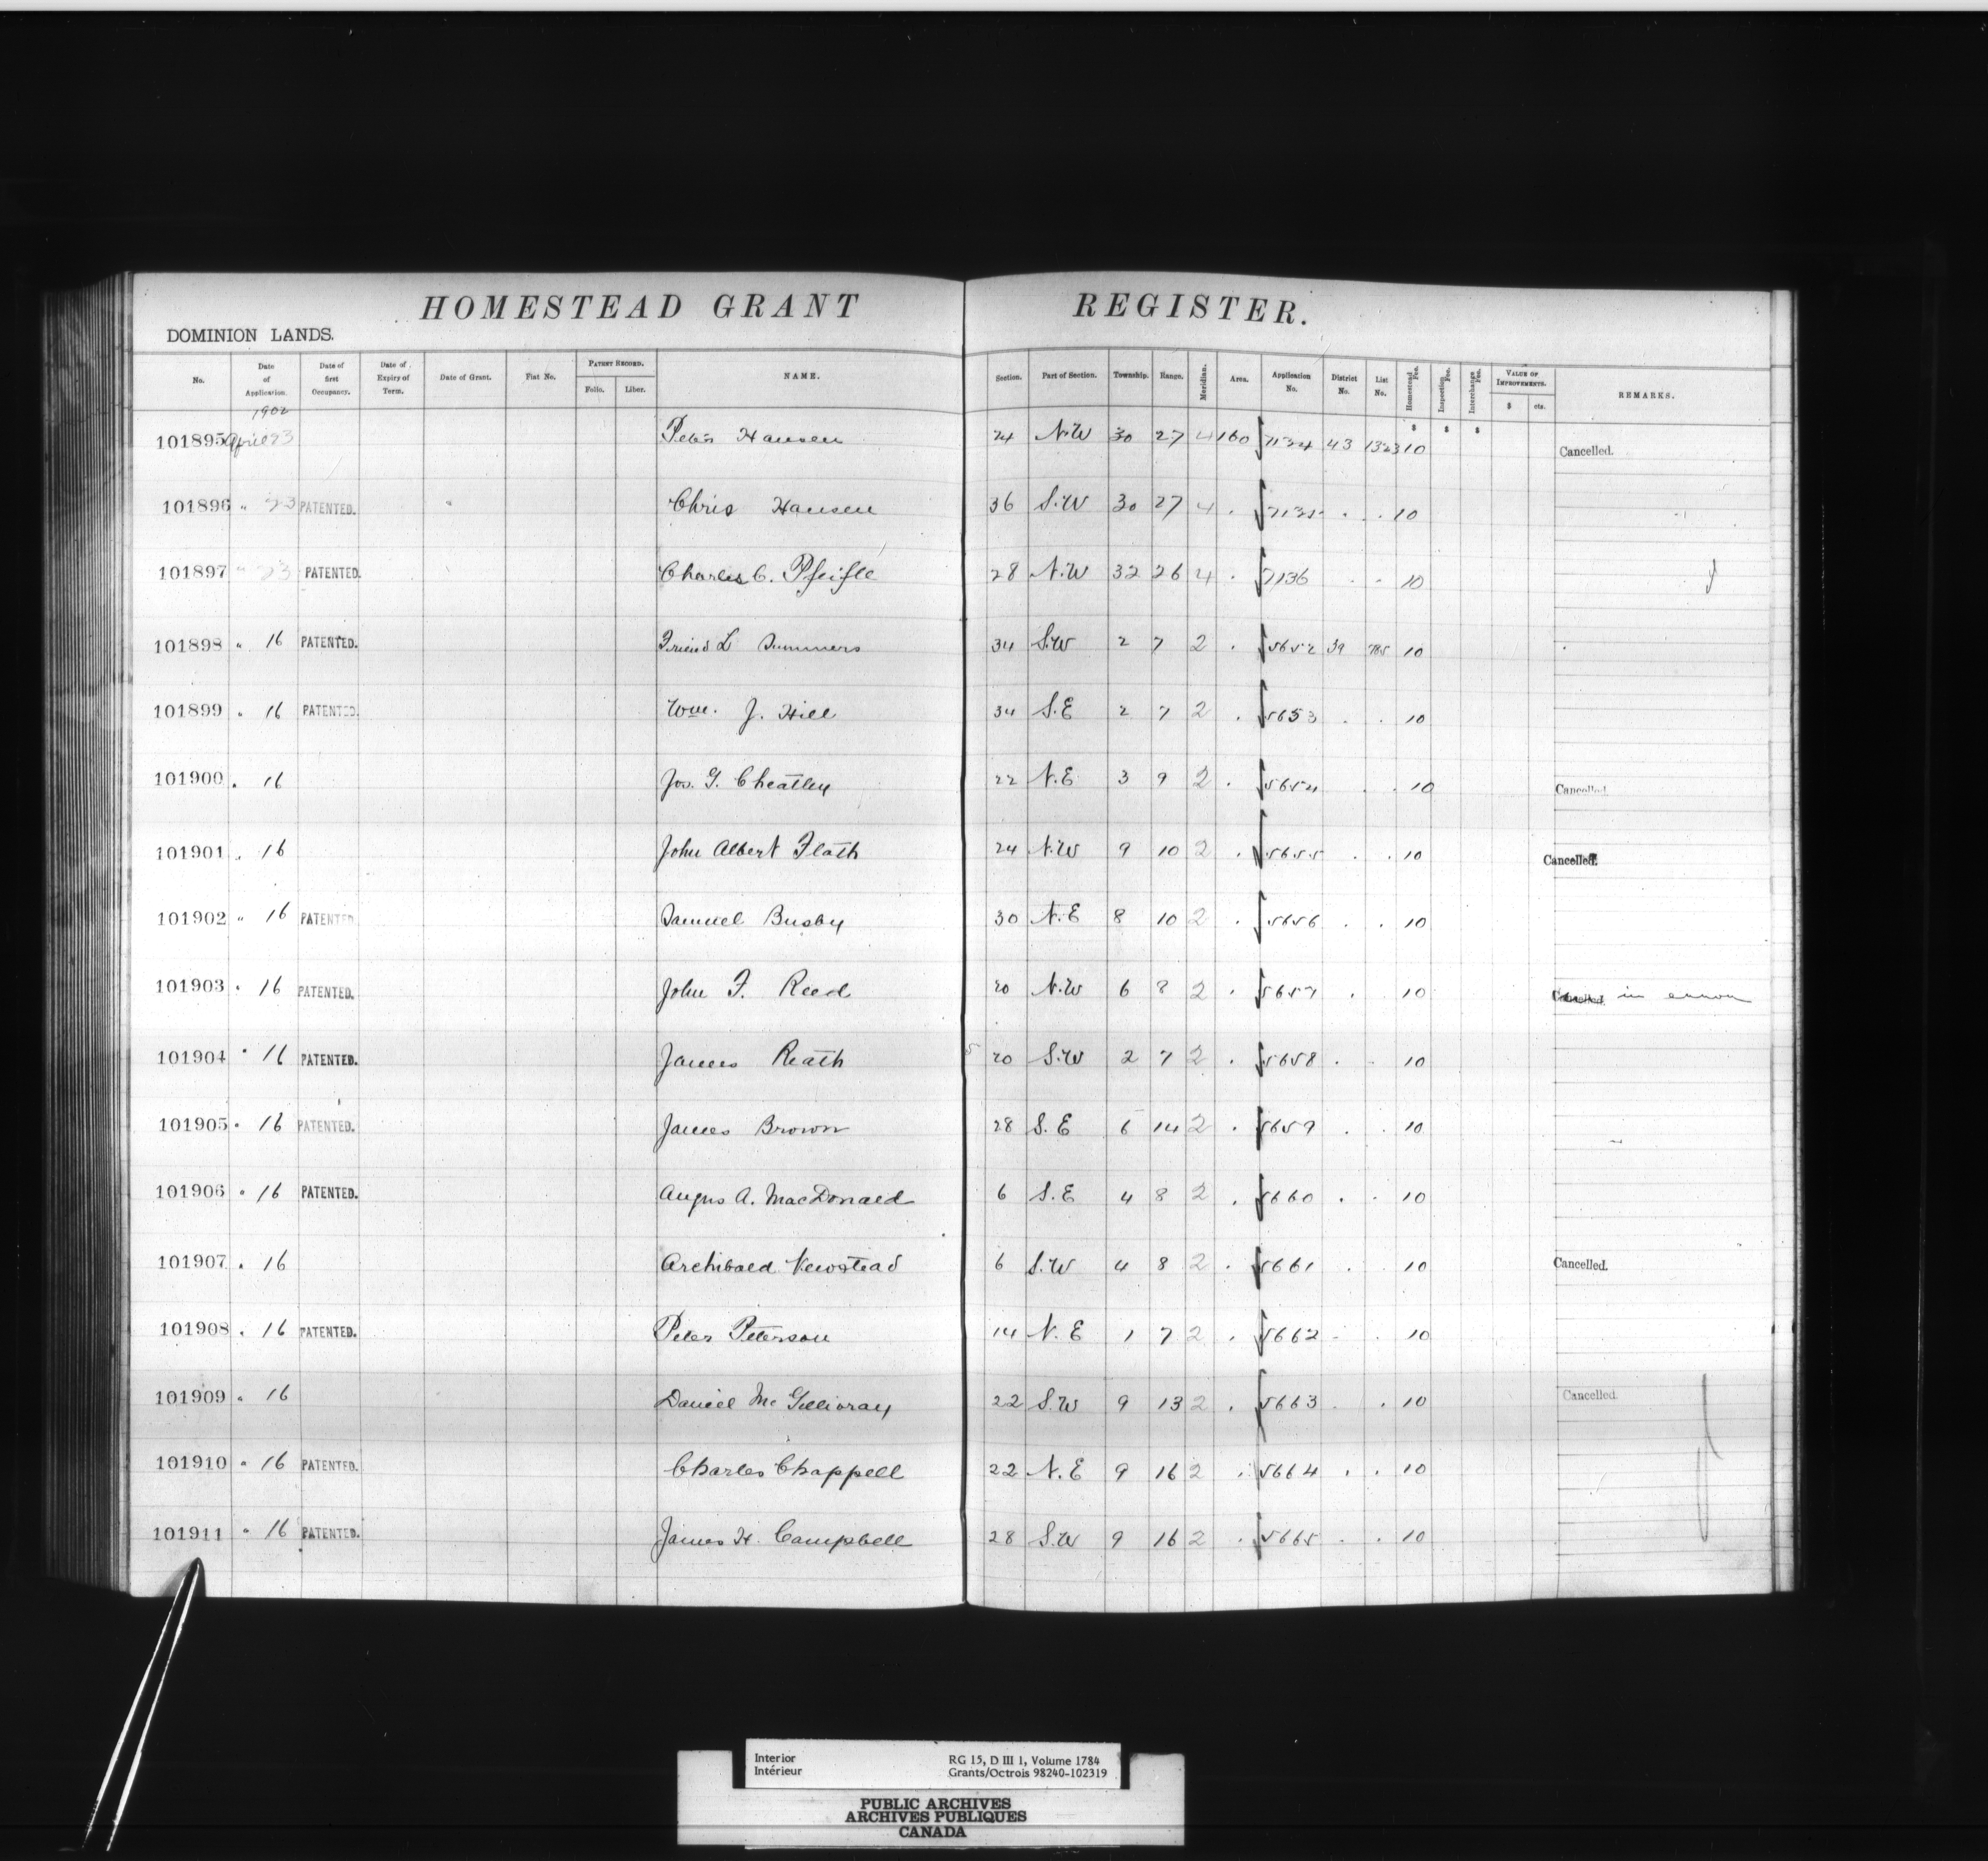 HOMESTEAD GRANT REGISTER.
DOMINION LANDS.
No. Date of Application. Date of first Occupancy. Date of Expiry of Term. Date of Grant. Fiat No. PATENT RECORD. Folio. Liber. NAME. Section. Part of Section. Township. Range. Meridian. Area. Application No. District No. List No. Homestead Fee. Inspection Fee. Interchange Fee. VALUE OF IMPROVEMENTS. $ cts. REMARKS.
1902 $ $ $
101895 April 23 Peter Hansen 24 N.W 30 27 4 160 7134 43 1323 10 Cancelled.
101896 " 23 PATENTED. " Chris Hansen 36 S.W 30 27 4 . 7135 . . 10
101897 " 23 PATENTED. Charles C. Pfeifle 28 N.W 32 26 4 . 7136 . . 10
101898 " 16 PATENTED. Friend L Summers 34 S.W 2 7 2 . 5652 39 785 10
101899 " 16 PATENTED. Wm. J. Hill 34 S.E 2 7 2 . 5653 . . 10
101900 " 16 Jos. G. Cheatley 22 N.E 3 9 2 . 5654 . . 10 Cancelled.
101901 " 16 John Albert Flath 24 N.W 9 10 2 . 5655 . . 10 Cancelled.
101902 " 16 PATENTED Samuel Busby 30 N.E 8 10 2 . 5656 . . 10
101903 " 16 PATENTED. John F. Reed 20 N.W 6 8 2 . 5657 . 10 Cancelled. in error
101904 " 16 PATENTED. James Reath 20 S.W 2 7 2 . 5658 . . 10
101905 " 16 PATENTED. James Brown 28 S.E 6 14 2 . 5659 . . 10
101906 " 16 PATENTED. Angus A. MacDonald 6 S.E 4 8 2 . 5660 . . 10
101907 " 16 Archibald Newstead 6 S.W 4 8 2 . 5661 . . 10 Cancelled.
101908 " 16 PATENTED. Peter Peterson 14 N.E 1 7 2 . 5662 . . 10
101909 " 16 Daniel McGillivray 22 S.W 9 13 2 . 5663 . . 10 Cancelled.
101910 " 16 PATENTED. Charles Chappell 22 N.E 9 16 2 . 5664 . . 10
101911 " 16 PATENTED. James H. Campbell 28 S.W 9 16 2 . 5665 . . 10
Interior RG 15, D III 1, Volume 1784
Intérieur Grants/Octrois 98240-102319
PUBLIC ARCHIVES
ARCHIVES PUBLIQUES
CANADA